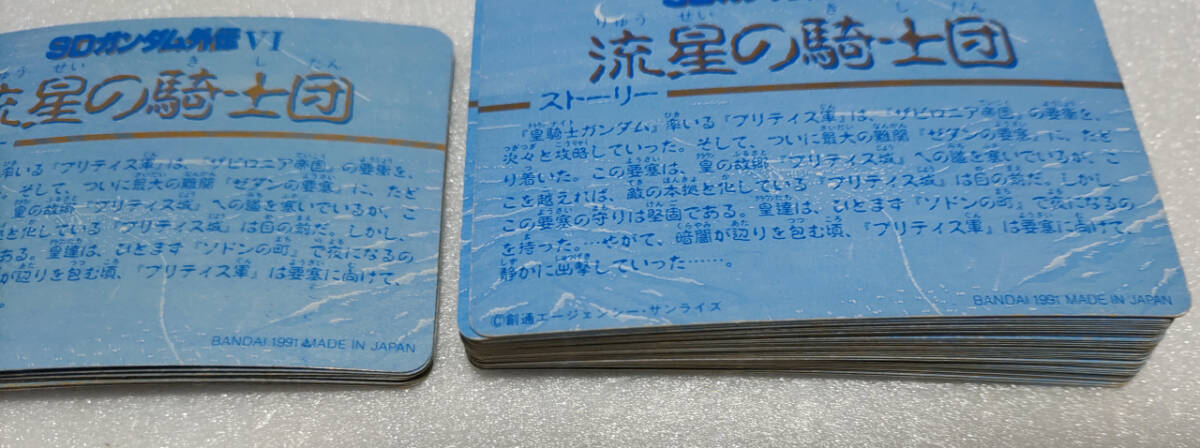 SDガンダム外伝 VI
りゅう せい き し だん
流星の騎士団
いる『ブリティス軍』は、『ザビロニア帝国』の要衝を、
。そして、ついに最大の難関『ゼダンの要塞』に、たど
皇の故郷『ブリティス城』への道を塞いでいるが、こ
と化している『ブリティス城』は目の前だ。しかし、
ある。皇達は、ひとまず『ソドンの町』で夜になるの
が辺りを包む頃、『ブリティス軍』は要塞に向けて、
。
BANDAI 1991 MADE IN JAPAN
りゅう せい き し だん
流星の騎士団
ストーリー
『皇騎士ガンダム』率いる『ブリティス軍』は、『ザビロニア帝国』の要衝を、
次々と攻略していった。そして、ついに最大の難関『ゼダンの要塞』に、たど
り着いた。この要塞は、皇の故郷『ブリティス城』への道を塞いでいるが、こ
こを越えれば、敵の本拠と化している『ブリティス城』は目の前だ。しかし、
この要塞の守りは堅固である。皇達は、ひとまず『ソドンの町』で夜になるの
を待った。…やがて、暗闇が辺りを包む頃、『ブリティス軍』は要塞に向けて、
静かに出撃していった……。
©創通エージェンシー・サンライズ
BANDAI 1991 MADE IN JAPAN